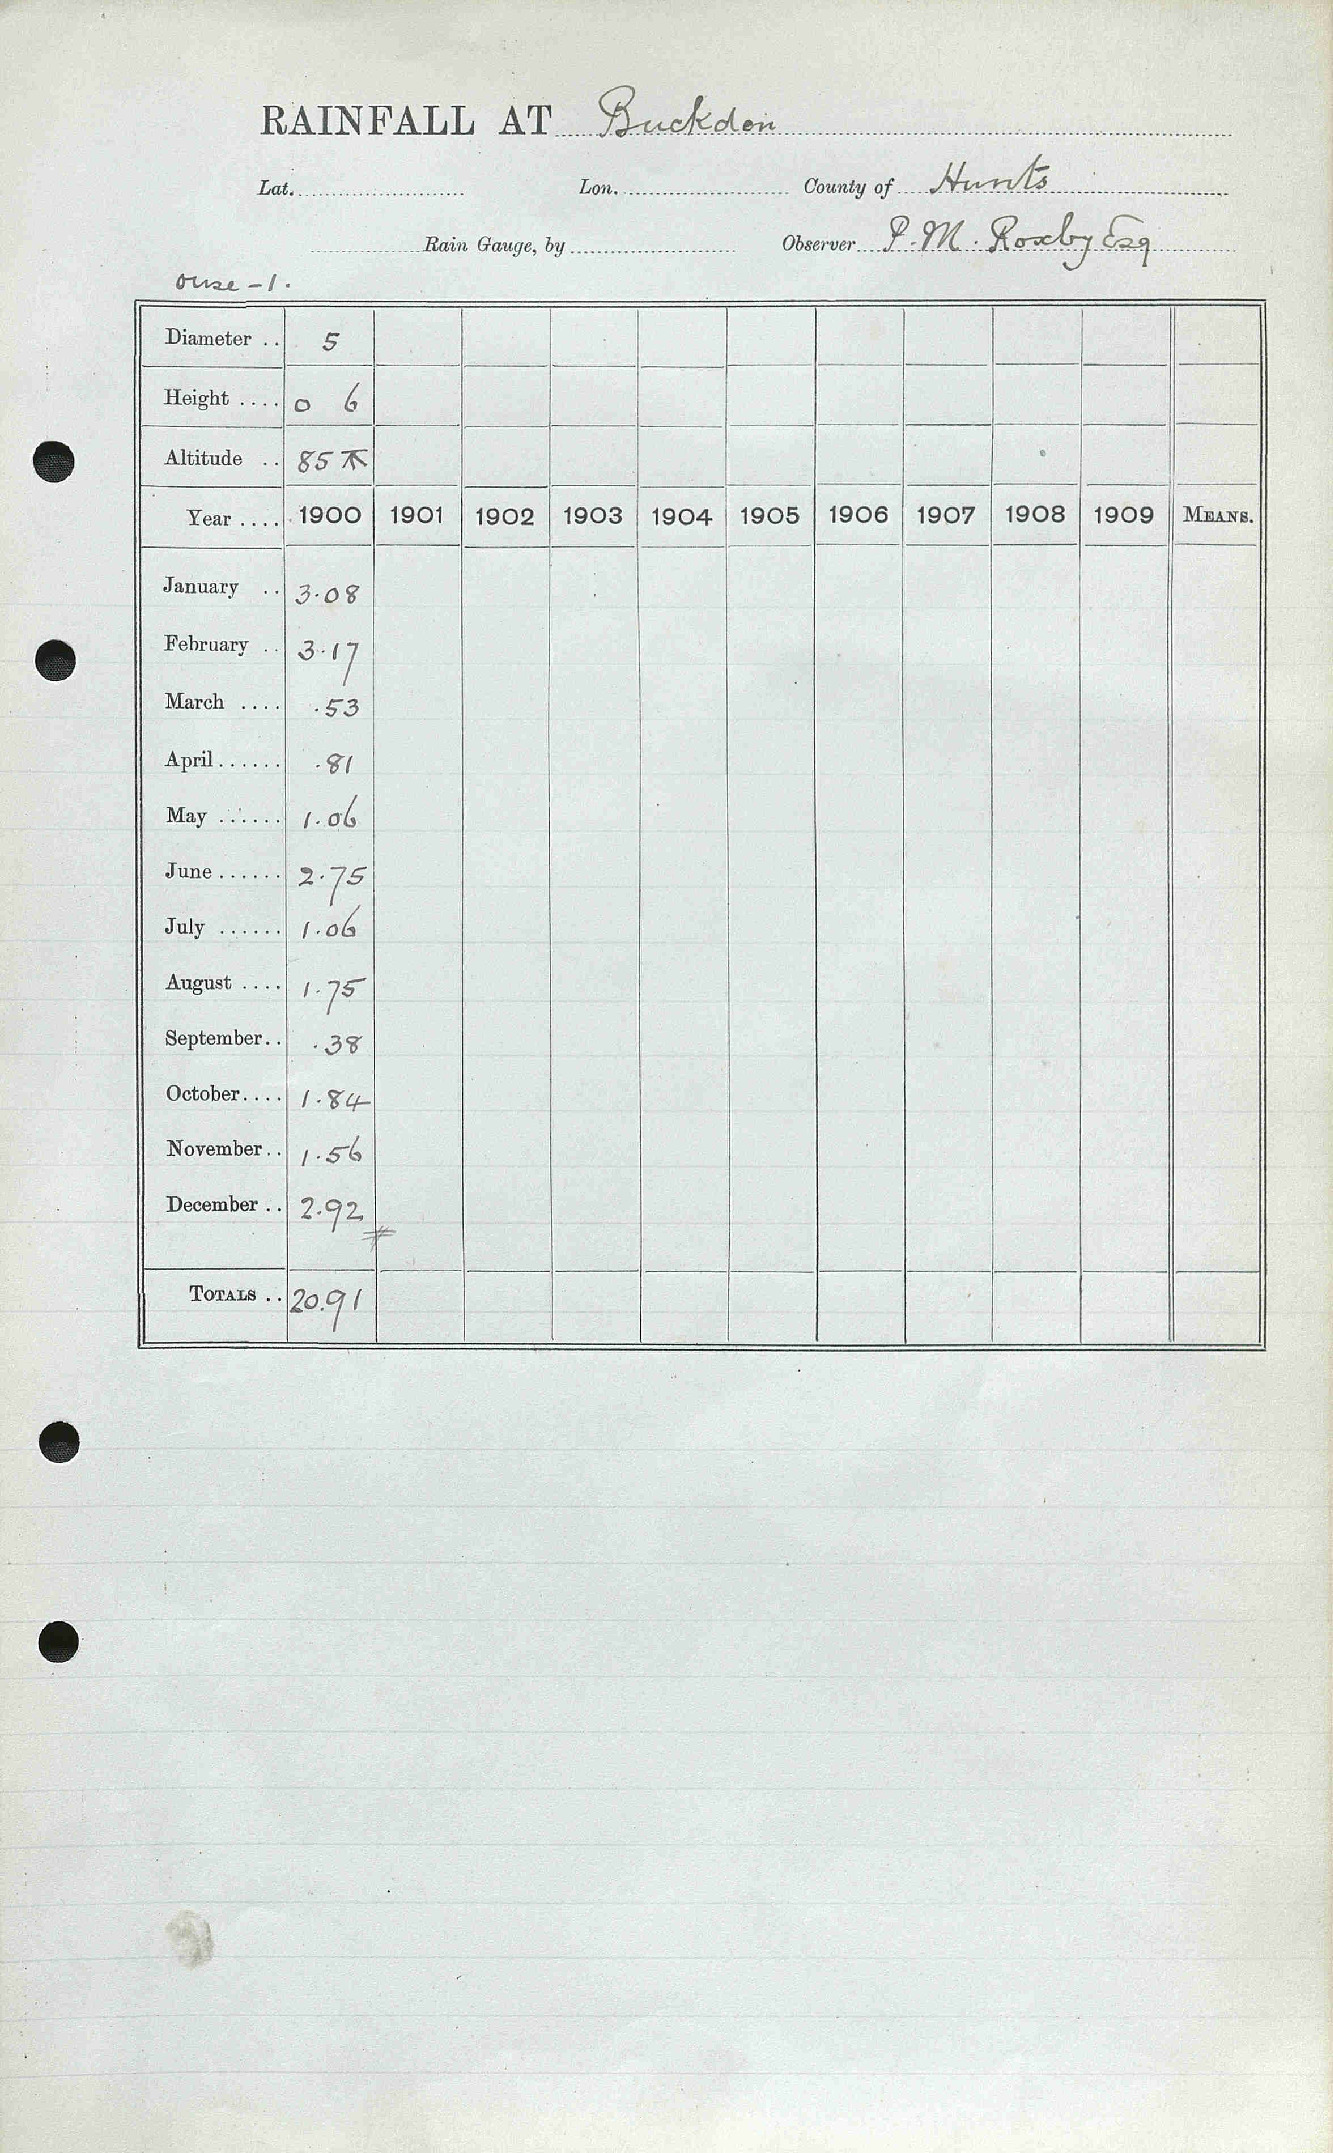 RAINFALL AT Buckden
Lat. Lon. County of Hunts
Rain Gauge, by Observer P. M. Roxby Esq
Ouse - 1.
Diameter .. 5
Height .... 0 6
Altitude .. 85
Year .... 1900 1901 1902 1903 1904 1905 1906 1907 1908 1909 MEANS.
January .. 3.08
February .. 3.17
March .... .53
April...... .81
May ...... 1.06
June...... 2.75
July ...... 1.06
August .... 1.75
September.. .38
October.... 1.84
November.. 1.56
December .. 2.92
TOTALS .. 20.91